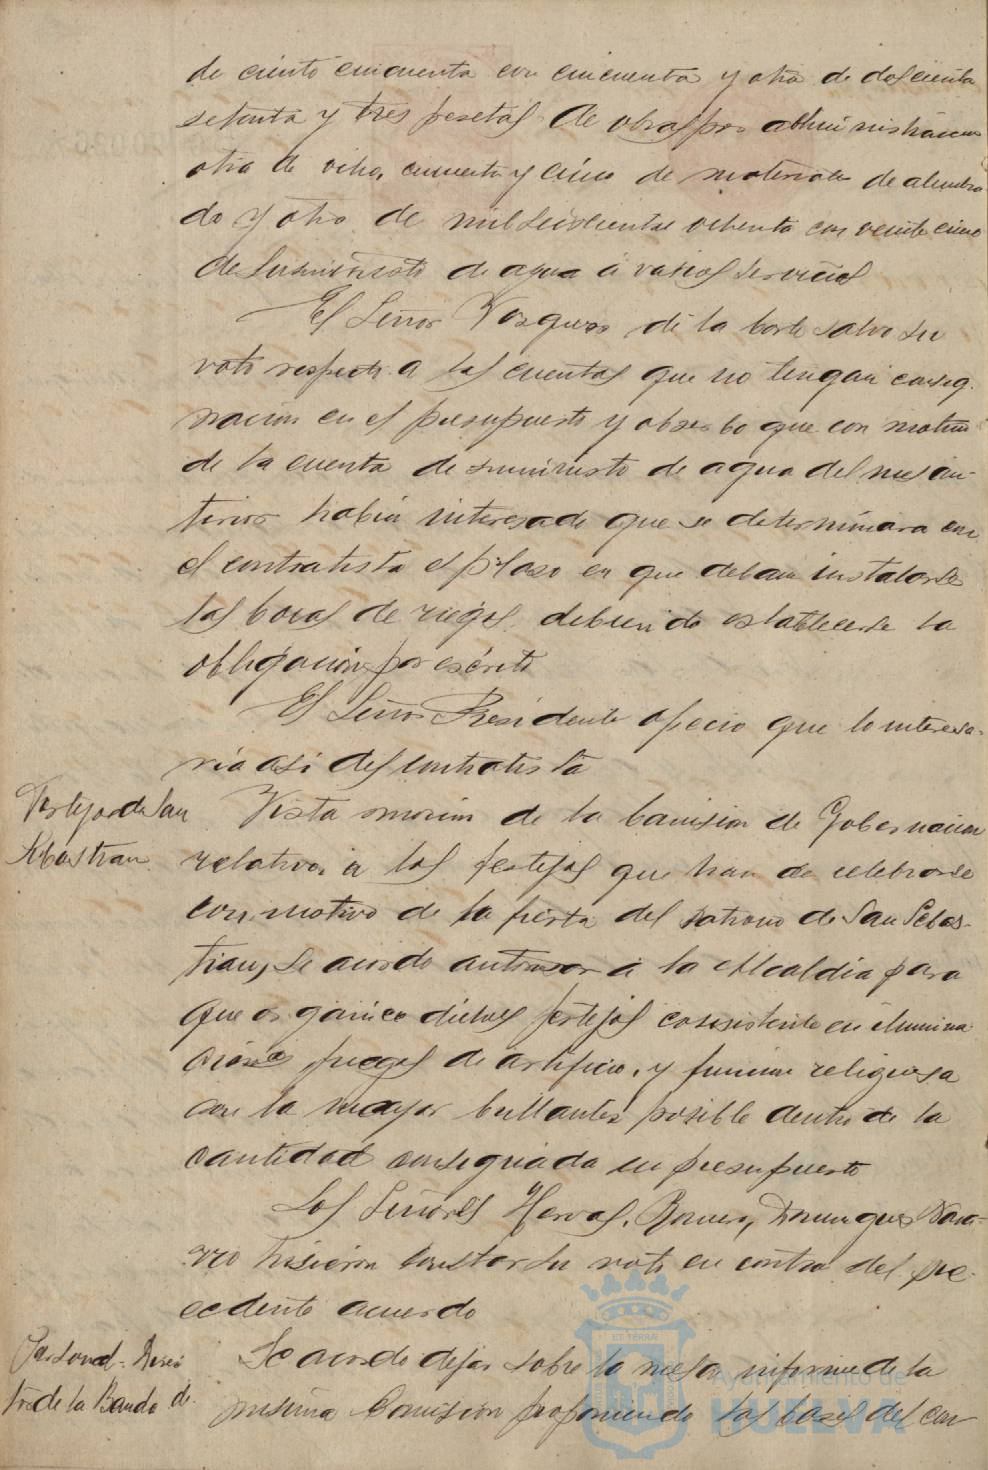 de ciento cincuenta con cincuenta y otra de doscienta
setenta y tres pesetas de obras por administracion
otra de ocho, cuenta y cinco de materiales de alumbra
do y otro de mil seiscientas ochenta con veinte cinco
de suministro de agua á varios servicios
El Señor Vazquez de la Corte salvo su
voto respecto a las cuentas que no tengan consig-
nacion en el presupuesto y observo que con motivo
de la cuenta de suministro de agua del mes an-
terior habia interesado que se determinara con
el contratista el plazo en que debian instalarse
las bocas de riegos, debiendo establecerse la
obligacion por escrito
El Señor Presidente ofecio que lo interesa-
ria asi del contratista
Festejos de San
Sebastian
Vista mocion de la Comision de Gobernacion
relativa á los festejos que han de celebrarse
con motivo de la fiesta del patrono de San Sebas-
tian, se acordo autorizar á la Alcaldia para
que organice dichos festejos consistente en ilumina
ciones, fuegos de artificio, y funcion religiosa
con la mayor brillantez posible dentro de la
cantidad consignada en presupuesto
Los Señores Hervas, Romero, Dominguez
hicieron constar su voto en contra del pre-
cedente acuerdo
Personal - Direc
tor de la Banda de
Se acordo dejar sobre la mesa informe de la
misma Comision proponiendo las bases del con
ET TERRAE
Ayuntamiento de
HUELVA